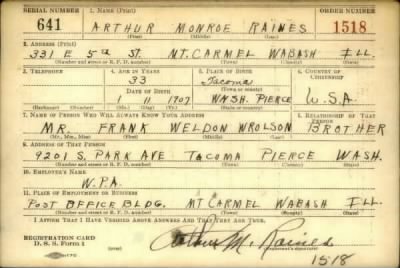 SERIAL NUMBER 1. NAME (Print) ORDER NUMBER
641 ARTHUR MONROE RAINES 1518
(First) (Middle) (Last)
2. ADDRESS (Print)
331 E 5th ST. MT. CARMEL WABASH ILL.
(Number and street or R. F. D. number) (Town) (County) (State)
3. TELEPHONE 4. AGE IN YEARS 5. PLACE OF BIRTH 6. COUNTRY OF CITIZENSHIP
33 Tacoma
(Town or county)
DATE OF BIRTH
1 11 1907 WASH. PIERCE U.S.A.
(Exchange) (Number) (Mo.) (Day) (Yr.) (State or country)
7. NAME OF PERSON WHO WILL ALWAYS KNOW YOUR ADDRESS 8. RELATIONSHIP OF THAT PERSON
MR. FRANK WELDON WROLSON BROTHER
(Mr., Mrs., Miss) (First) (Middle) (Last)
9. ADDRESS OF THAT PERSON
9201 S. PARK AVE TACOMA PIERCE WASH.
(Number and street or R. F. D. number) (Town) (County) (State)
10. EMPLOYER'S NAME
W.P.A.
11. PLACE OF EMPLOYMENT OR BUSINESS
POST OFFICE BLDG. MT CARMEL WABASH ILL.
(Number and street or R. F. D. number) (Town) (County) (State)
I AFFIRM THAT I HAVE VERIFIED ABOVE ANSWERS AND THAT THEY ARE TRUE.
REGISTRATION CARD
D. S. S. Form 1 Arthur M. Raines
(Registrant's signature)
1518